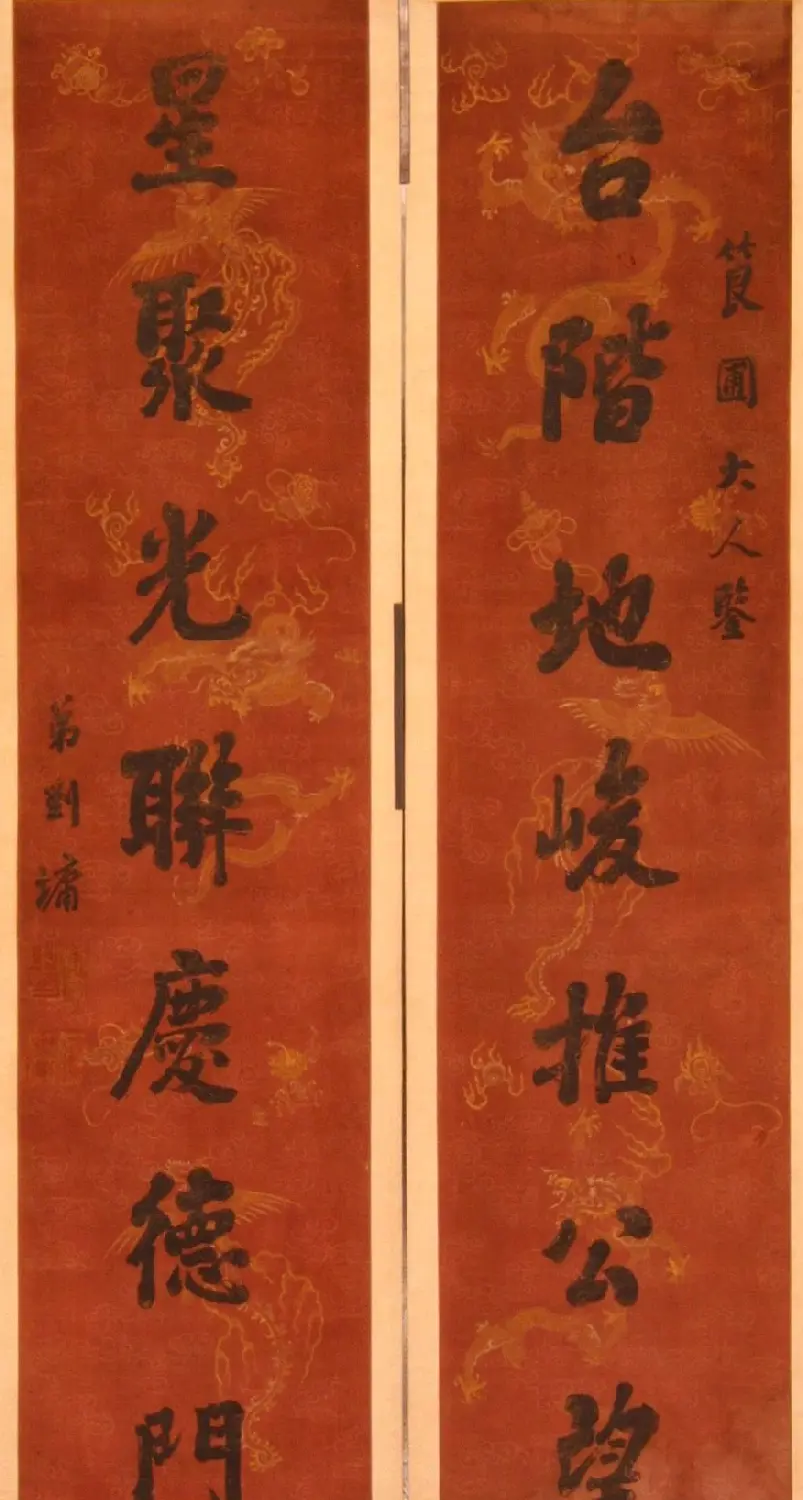 筤圃大人鑒
台階地峻推公望
星聚光聯慶德門
弟劉墉